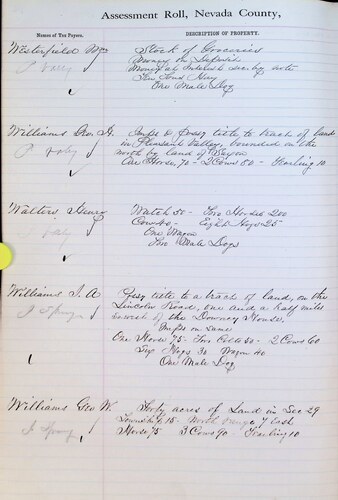 Assessment Roll, Nevada County,
Names of Tax Payers.
DESCRIPTION OF PROPERTY.
Westerfield Wm
Stock of Groceries
Money on Deposit
Money at Interest
Ten Tons Hay
One Male Dog
Williams Geo. H.
Imps & possy title to tract of land
in Pleasant Valley, bounded on the
north by land of
One Horse 70 - 2 Cows 50 - Yearling 10
Walters Henry
Watch 50 - Two Horses 200
Cow 40 - Eight Hogs 25
One Wagon
Two Male Dogs
Williams J. A
Possy title to a tract of land, on the
Lincoln Road, one and a half miles
west of the Downey House,
Imps on Same
One Horse 75 - Two Colts 50 - 2 Cows 60
Six Hogs 30 Wagon 40
One Male Dog
Williams Geo W.
Forty acres of Land in Sec 29
Township 15 - North range 7 East
Horse 75 3 Cows 90 - Yearling 10